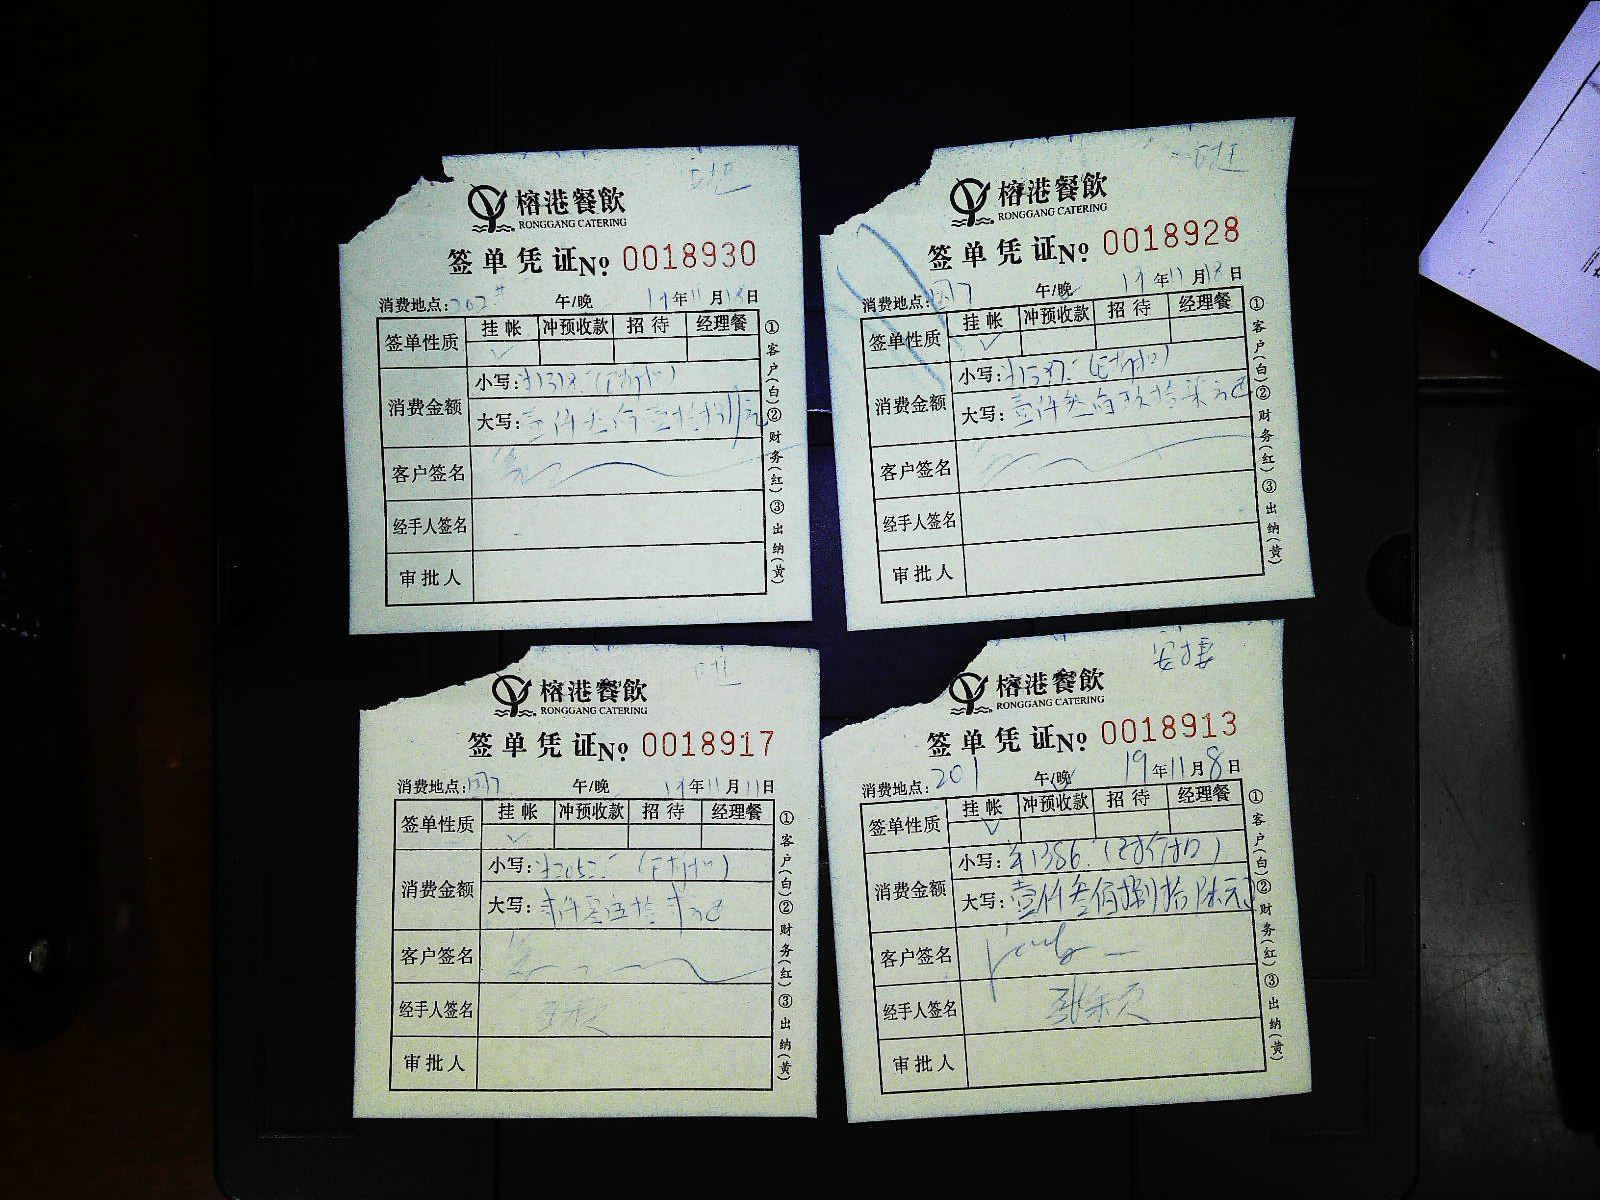 榕港餐飲
RONGGANG CATERING
签单凭证№ 0018930
消费地点: 午/晚 19年11月18日
签单性质 挂帐 冲预收款 招待 经理餐
消费金额
小写:
大写:
客户签名
经手人签名
审批人
①客户(白)②财务(红)③出纳(黄)
榕港餐飲
RONGGANG CATERING
签单凭证№ 0018928
消费地点: 午/晚 19年11月18日
签单性质 挂帐 冲预收款 招待 经理餐
消费金额
小写:
大写:
客户签名
经手人签名
审批人
①客户(白)②财务(红)③出纳(黄)
榕港餐飲
RONGGANG CATERING
签单凭证№ 0018917
消费地点: 午/晚 19年11月11日
签单性质 挂帐 冲预收款 招待 经理餐
消费金额
小写:
大写: 贰仟零伍拾贰元
客户签名
经手人签名
审批人
①客户(白)②财务(红)③出纳(黄)
榕港餐飲
RONGGANG CATERING
签单凭证№ 0018913
消费地点:201 午/晚 19年11月8日
签单性质 挂帐 冲预收款 招待 经理餐
消费金额
小写:¥1386.
大写:壹仟叁佰捌拾陆元
客户签名
经手人签名
审批人
①客户(白)②财务(红)③出纳(黄)